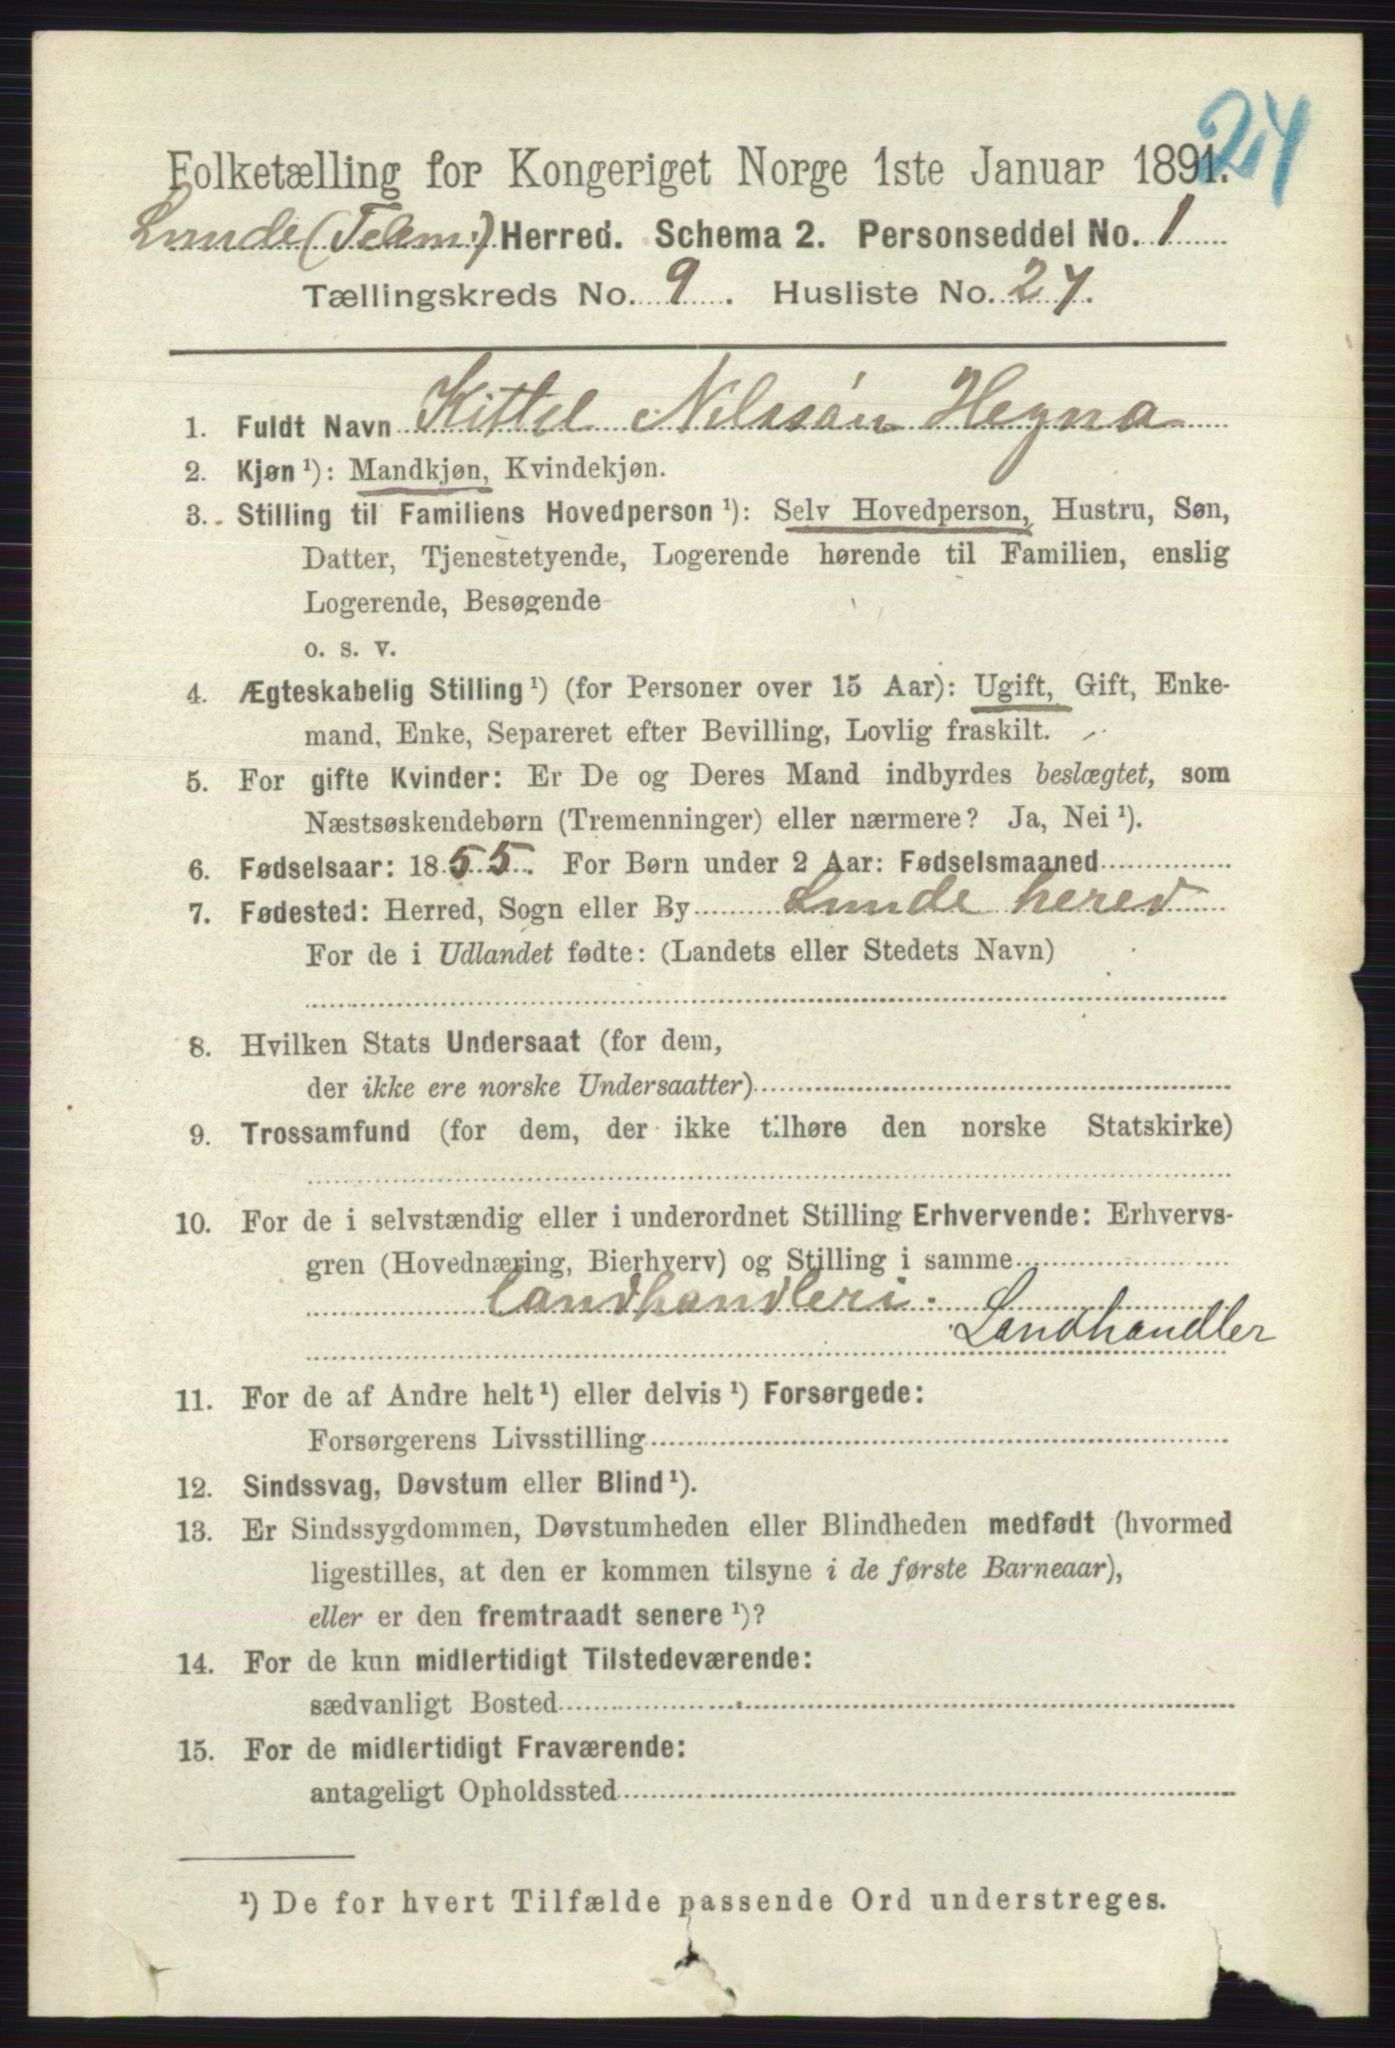 24
Folketælling for Kongeriget Norge 1ste Januar 1891.
Lunde (Telem.) Herred. Schema 2. Personseddel No. 1
Tællingskreds No. 9. Husliste No. 24.
1. Fuldt Navn Kittel Nilssøn Hegna
2. Kjøn ¹): Mandkjøn, Kvindekjøn.
3. Stilling til Familiens Hovedperson ¹): Selv Hovedperson, Hustru, Søn,
Datter, Tjenestetyende, Logerende hørende til Familien, enslig
Logerende, Besøgende
o. s. v.
4. Ægteskabelig Stilling ¹) (for Personer over 15 Aar): Ugift, Gift, Enke-
mand, Enke, Separeret efter Bevilling, Lovlig fraskilt.
5. For gifte Kvinder: Er De og Deres Mand indbyrdes beslægtet, som
Næstsøskendebørn (Tremenninger) eller nærmere? Ja, Nei ¹).
6. Fødselsaar: 1855. For Børn under 2 Aar: Fødselsmaaned
7. Fødested: Herred, Sogn eller By Lunde hered
For de i Udlandet fødte: (Landets eller Stedets Navn)
8. Hvilken Stats Undersaat (for dem,
der ikke ere norske Undersaatter)
9. Trossamfund (for dem, der ikke tilhøre den norske Statskirke)
10. For de i selvstændig eller i underordnet Stilling Erhvervende: Erhvervs-
gren (Hovednæring, Bierhverv) og Stilling i samme
Landhandleri.
Landhandler
11. For de af Andre helt ¹) eller delvis ¹) Forsørgede:
Forsørgerens Livsstilling
12. Sindssvag, Døvstum eller Blind ¹).
13. Er Sindssygdommen, Døvstumheden eller Blindheden medfødt (hvormed
ligestilles, at den er kommen tilsyne i de første Barneaar),
eller er den fremtraadt senere ¹)?
14. For de kun midlertidigt Tilstedeværende:
sædvanligt Bosted
15. For de midlertidigt Fraværende:
antageligt Opholdssted
¹) De for hvert Tilfælde passende Ord understreges.